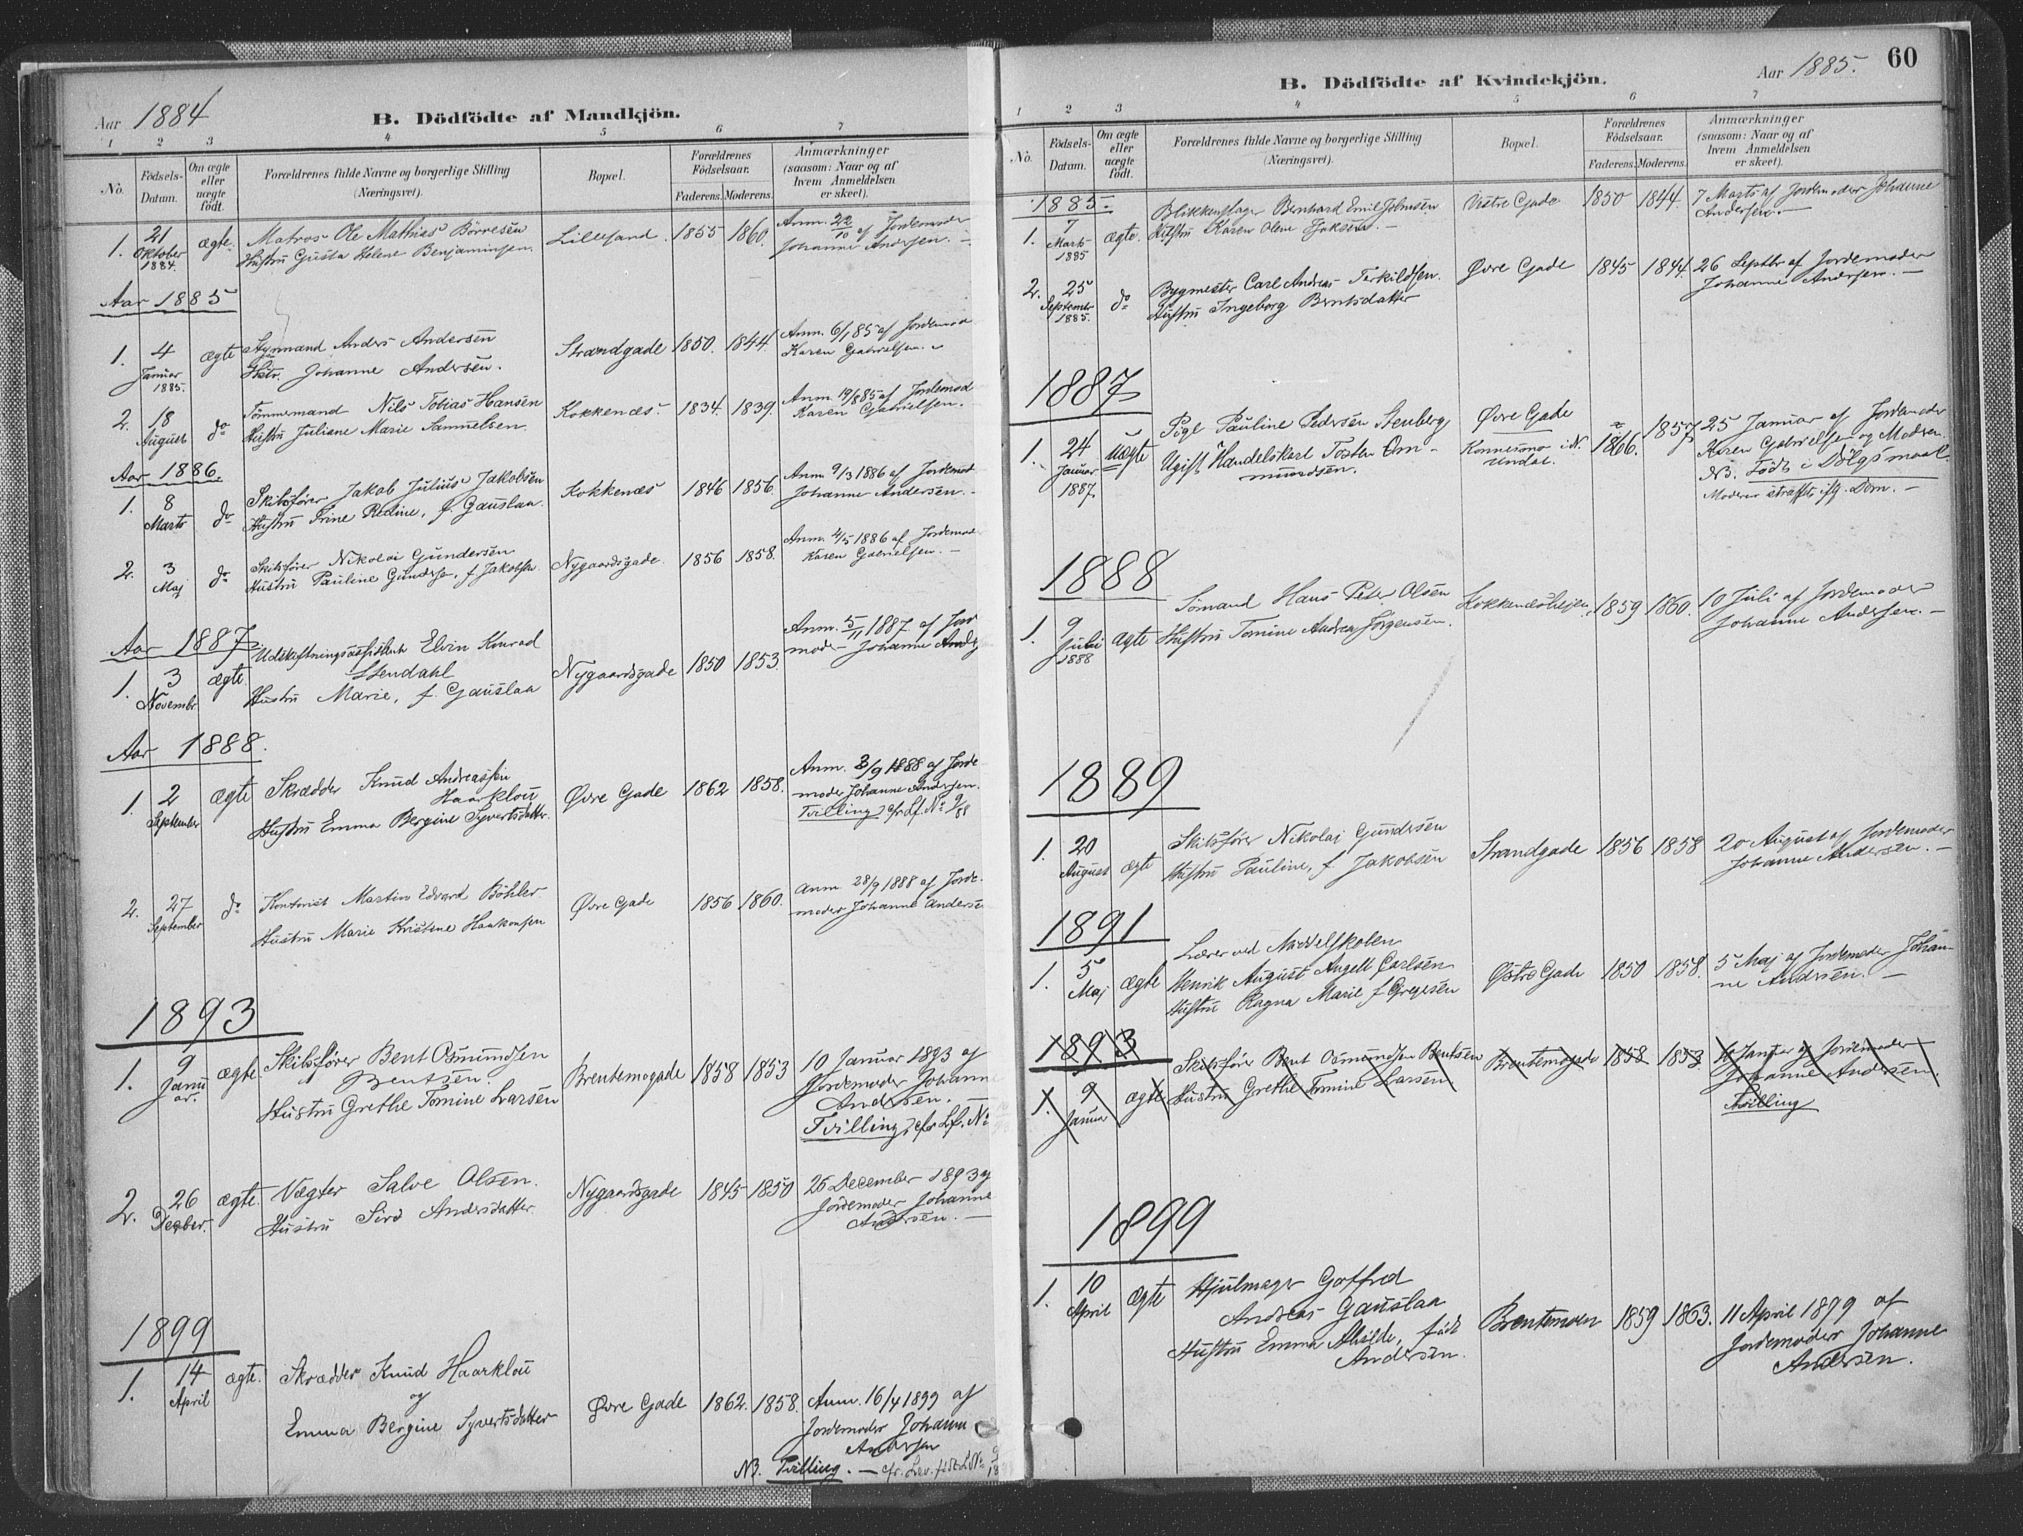 Aar 1884
B. Dödfödte af Mandkjön.
1 2 3 4 5 6 7
No. Födsels-Datum. Om ægte eller uægte födt. Forældrenes fulde Navne og borgerlige Stilling (Næringsvei). Bopæl. Forældrenes Födselsaar. Faderens. Moderens. Anmærkninger (saasom: Naar og af hvem Anmeldelsen er skeet).
1. 21 Oktober 1884. ægte. Matros Ole Mathias Börresen
Hustru Gusta Helene Benjaminsen. Lillesand. 1855 1860. Anm. 22/10 af Jordemoder
Johanne Andersen. —
Aar 1885
1. 4 Januar 1885. ægte Styrmand Anders Andersen
Hstr. Johanne Andersen. Strandgade 1850. 1844. Anm. 6/1 85 af Jordemod
Karen Gabrielsen.
2. 18 August do Tömmermand Nils Tobias Hansen
Hustru Juliane Marie Samuelsen. Kokkenæs. 1834. 1839. Anm. 19/8 85 af Jordemod
Karen Gabrielsen.
Aar 1886.
1. 8 Marts do Skibsförer Jakob Julius Jakobsen
Hustru Trine Redine, f. Gauslaa. Kokkenæs 1846 1856 Anm. 9/3 1886 af Jordemod
Johanne Andersen. —
2. 3 Maj do Skibsförer Nikolai Gundersen
Hustru Pauline Gunderse, f. Jakobsen. Nygaardsgade. 1856 1858. Anm. 4/5 1886 af Jordemode
Karen Gabrielsen. —
Aar 1887
1. 3 Novembr. ægte Udskiftningsassistent Elvin Konrad
Stendahl
Hustru Marie, f. Gauslaa Nygaardsgade 1850 1853. Anm. 5/11 1887 af Jor
moder Johanne Ande
Aar 1888.
1. 2 September ægte Skrædder Knud Andreassen
Haarklou
Hustru Emma Bergine Syvertsdatter. Övre Gade 1862 1858. Anm. 3/9 1888 af Jorde-
moder Johanne Andersen.
Tvilling, cfr Lf. No 9/88
2. 27 September do Kontorist Martin Edvard Böhler
Hustru Marie Kristene Haakonsen Övre Gade 1856 1860. Anm 28/9 1888 af Jorde-
moder Johanne Anderse
1893
1. 9 Januar. ægte. Skibsförer Bent Osmundsen
Bentsen.
Hustru Grethe Tomine Larsen Brentemogade 1858 1853 10 Januar 1893 af
Jordemoder Johanne
Andersen.
Tvilling, cfr Lf. No
2. 26 Decber. ægte. Vægter Salve Olsen.
Hustru Siro Andersdatter. Nygaardsgade 1845 1850 26 December 1893 af
Jordemoder Johanne
Andersen. —
1899
1. 14 April ægte. Skrædder Knud Haarklou
og
Emma Bergine Syvertsdatter Övre Gade 1862. 1858. Anm. 16/4 1899 af
Jordemoder Johann
Andersen
NB. Tvilling. — cfr. Lev. födt L.No
60
Aar 1885.
B. Dödfödte af Kvindekjön.
1 2 3 4 5 6 7
No. Födsels-Datum. Om ægte eller uægte födt. Forældrenes fulde Navne og borgerlige Stilling (Næringsvei). Bopæl. Forældrenes Födselsaar. Faderens. Moderens. Anmærkninger (saasom: Naar og af hvem Anmeldelsen er skeet).
1885.
1. 7 Marts 1885 ægte. Blikkenslager Bernhard Emil Johnsen
Hustru Karen Olene Isaksen. — Vestre Gade 1850 1844. 7 Marts af Jordemoder Johanne
Andersen. —
2. 25 September 1885. do Bygmester Carl Andreas Terkildsen.
Hustru Ingeborg Berntsdatter Övre Gade 1845 1844. 26 Septbr af Jordemoder
Johanne Andersen. —
1887
1. 24 Januar 1887. Uægte Pige Pauline Pedersen Stenberg
Ugift Handelskarl Tosten Om-
mundsen. Övre Gade
Konnesmo i N.
Undal. 1866. 1857 25 Januar af Jordemoder
Karen Gabrielsen og Modren.
NB. Födt i Dölgsmaal
Moderen straffet iflg. Dom. —
1888
1. 9 Juli 1888 ægte Sömand Hans Peter Olsen
Hustru Tomine Andrea Jörgensen. Kokkenæsheien. 1859 1860. 10 Juli af Jordemoder
Johanne Andersen. —
1889
1. 20 August ægte Skibsförer Nikolai Gundersen
Hustru Pauline, f. Jakobsen Strandgade 1856 1858 20 August af Jordemoder
Johanne Andersen. —
1891
1. 5 Maj ægte Lærer ved Middelskolen
Henrik August Angell Carlsen
Hustru Ragna Marie f. Gregesen Östre Gade 1850 1858. 5 Maj af Jordemoder Johan-
ne Andersen. —
1893
1. 9 Januar ægte Skibsförer Bent Osmundsen Bentsen
Hustru Grethe Tomine Larsen Brentemogade 1858 1853. 10 Januar af Jordemoder
Johanne Andersen.
Tvilling
1899
1. 10 April ægte Hjulmager Goffred
Andreas Gauslaa
Hustru Emma Alvilde, födt
Andersen. Brentemoen 1859 1863. 11 April 1899 af
Jordemoder Johanne
Andersen.